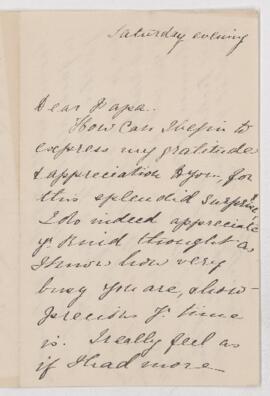 Saturday evening
Dear Papa.
How can I begin to
express my gratitude
& appreciation to you, for
this splendid surprise,
I do indeed appreciate
yr kind thought as
I know how very
busy you are, & how
precious yr time
is. I really feel as
if I had more